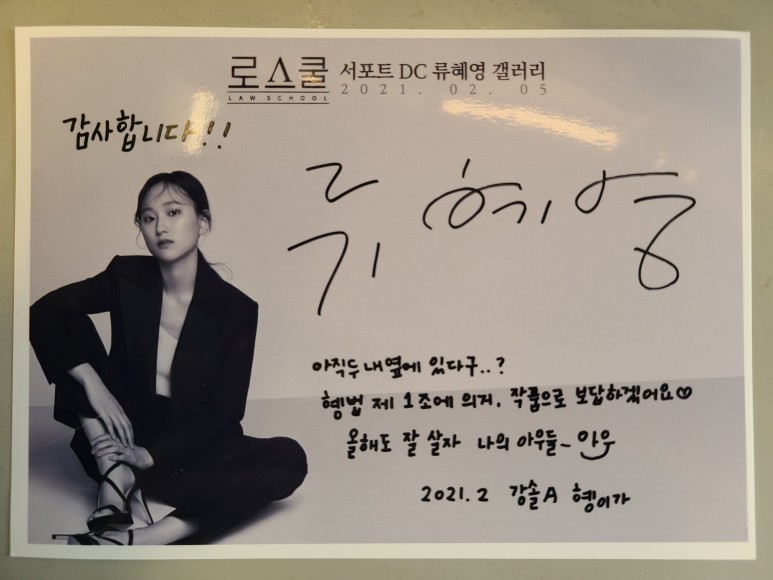 로스쿨 서포트 DC 류혜영 갤러리
LAW SCHOOL 2021. 02. 05
감사합니다!!
류혜영
아직두 내 옆에 있다구..?
혱법 제 1조에 의거, 작품으로 보답하겠어요♡
올해도 잘 살자 나의 아우들~ 아우
2021.2 강솔A 혱이가